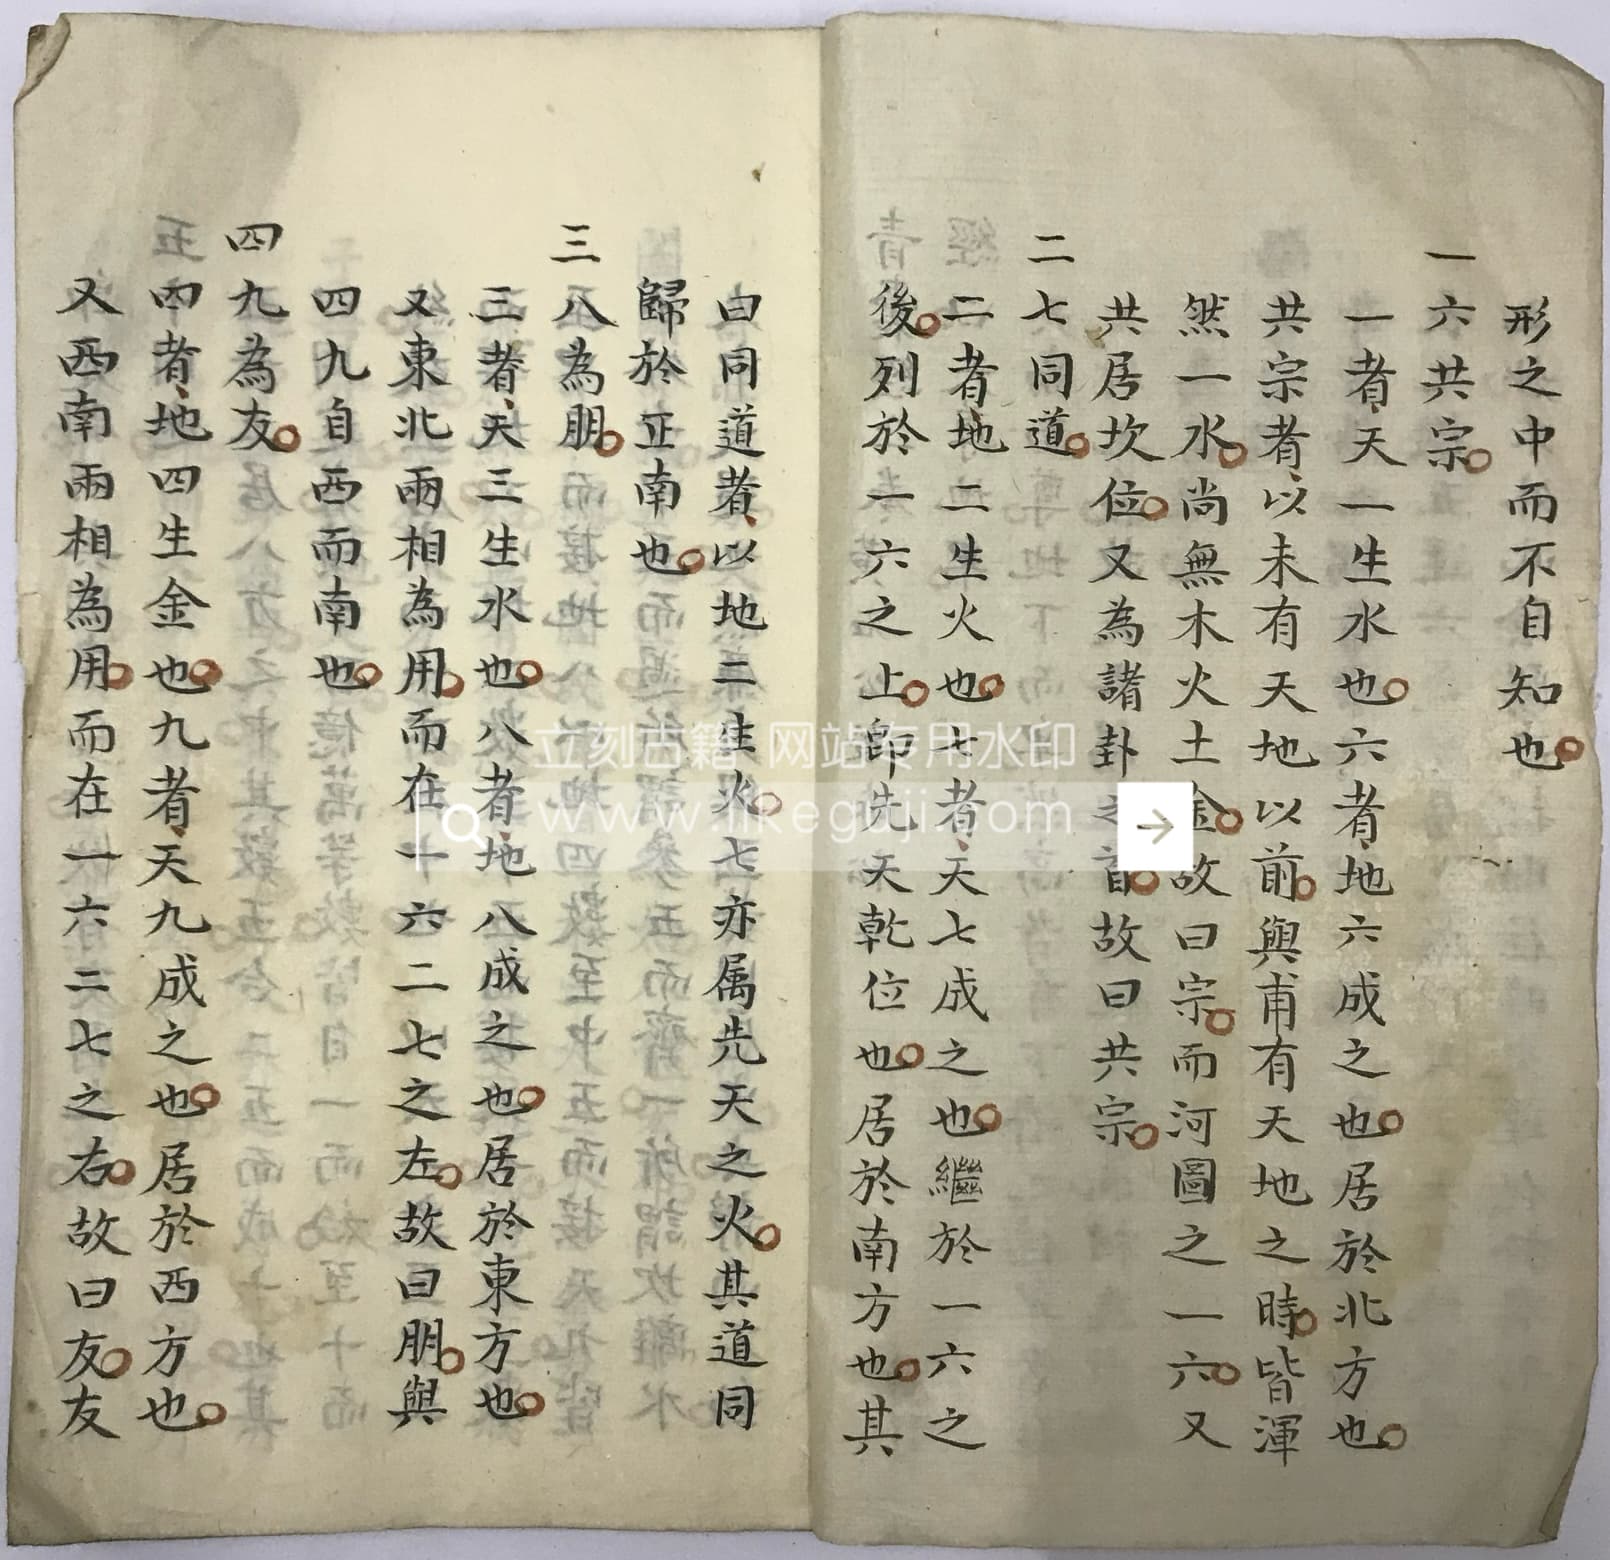 形之中而不自知也
一六共宗
一者天一生水也六者地六成之也居於北方也
共宗者以未有天地以前與甫有天地之時皆渾
然一水尚無木火土金故曰宗而河圖之一六又
共居坎位又為諸卦之首故曰共宗
二七同道
二者地二生火也七者天七成之也繼於一六之
後列於一六之上即先天乾位也居於南方也其
曰同道者以地二生火七亦属先天之火其道同
歸於正南也
三八為朋
三者天三生水也八者地八成之也居於東方也
又東北兩相為用而在十六二七之左故曰朋與
四九自西而南也
四九為友
四者地四生金也九者天九成之也居於西方也
又西南兩相為用而在一六二七之右故曰友友
立刻古籍 网站专用水印
www.likeguji.com